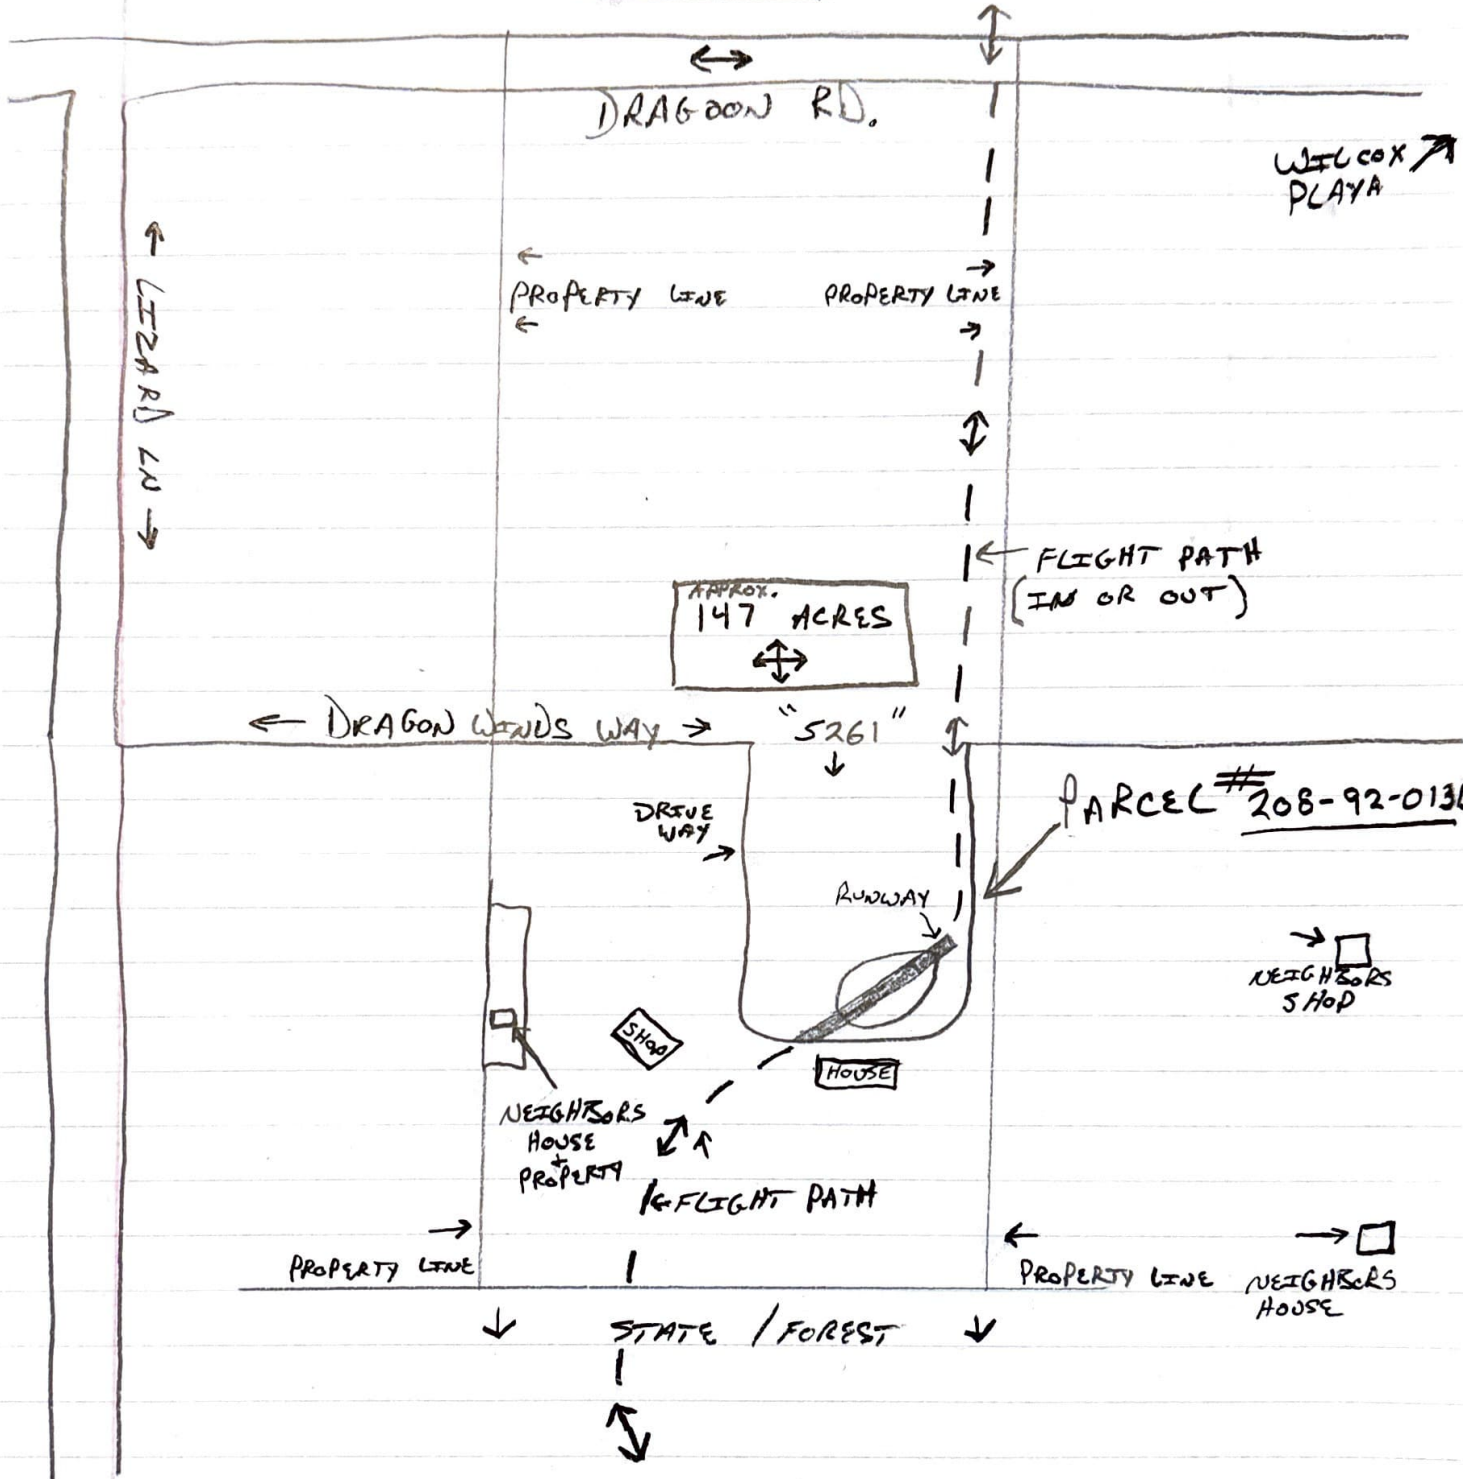 DRAGOON RD.
WILCOX
PLAYA
← LIZARD LN →
PROPERTY LINE
PROPERTY LINE
FLIGHT PATH
(IN OR OUT)
APPROX.
147 ACRES
← DRAGON WINDS WAY →
"5261"
DRIVE
WAY
PARCEL #
RUNWAY
NEIGHBORS
SHOP
SHOP
HOUSE
NEIGHBORS
HOUSE
+
PROPERTY
FLIGHT PATH
PROPERTY LINE
PROPERTY LINE
NEIGHBORS
HOUSE
STATE / FOREST